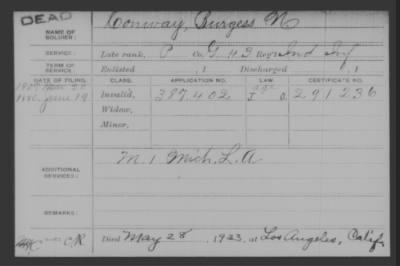 DEAD
NAME OF SOLDIER: Conway, Burgess N
SERVICE: Late rank, P Co. G, 43 Reg't Ind Inf
TERM OF SERVICE: Enlisted , 1 Discharged , 1
DATE OF FILING. CLASS. APPLICATION NO. LAW. CERTIFICATE NO.
1880 June 19 Invalid, 387.402 291236
Widow,
Minor,
ADDITIONAL SERVICES: M. 1 Mich. L. A
REMARKS:
C.R. Died May 28, 1923, at Los Angeles, Calif.